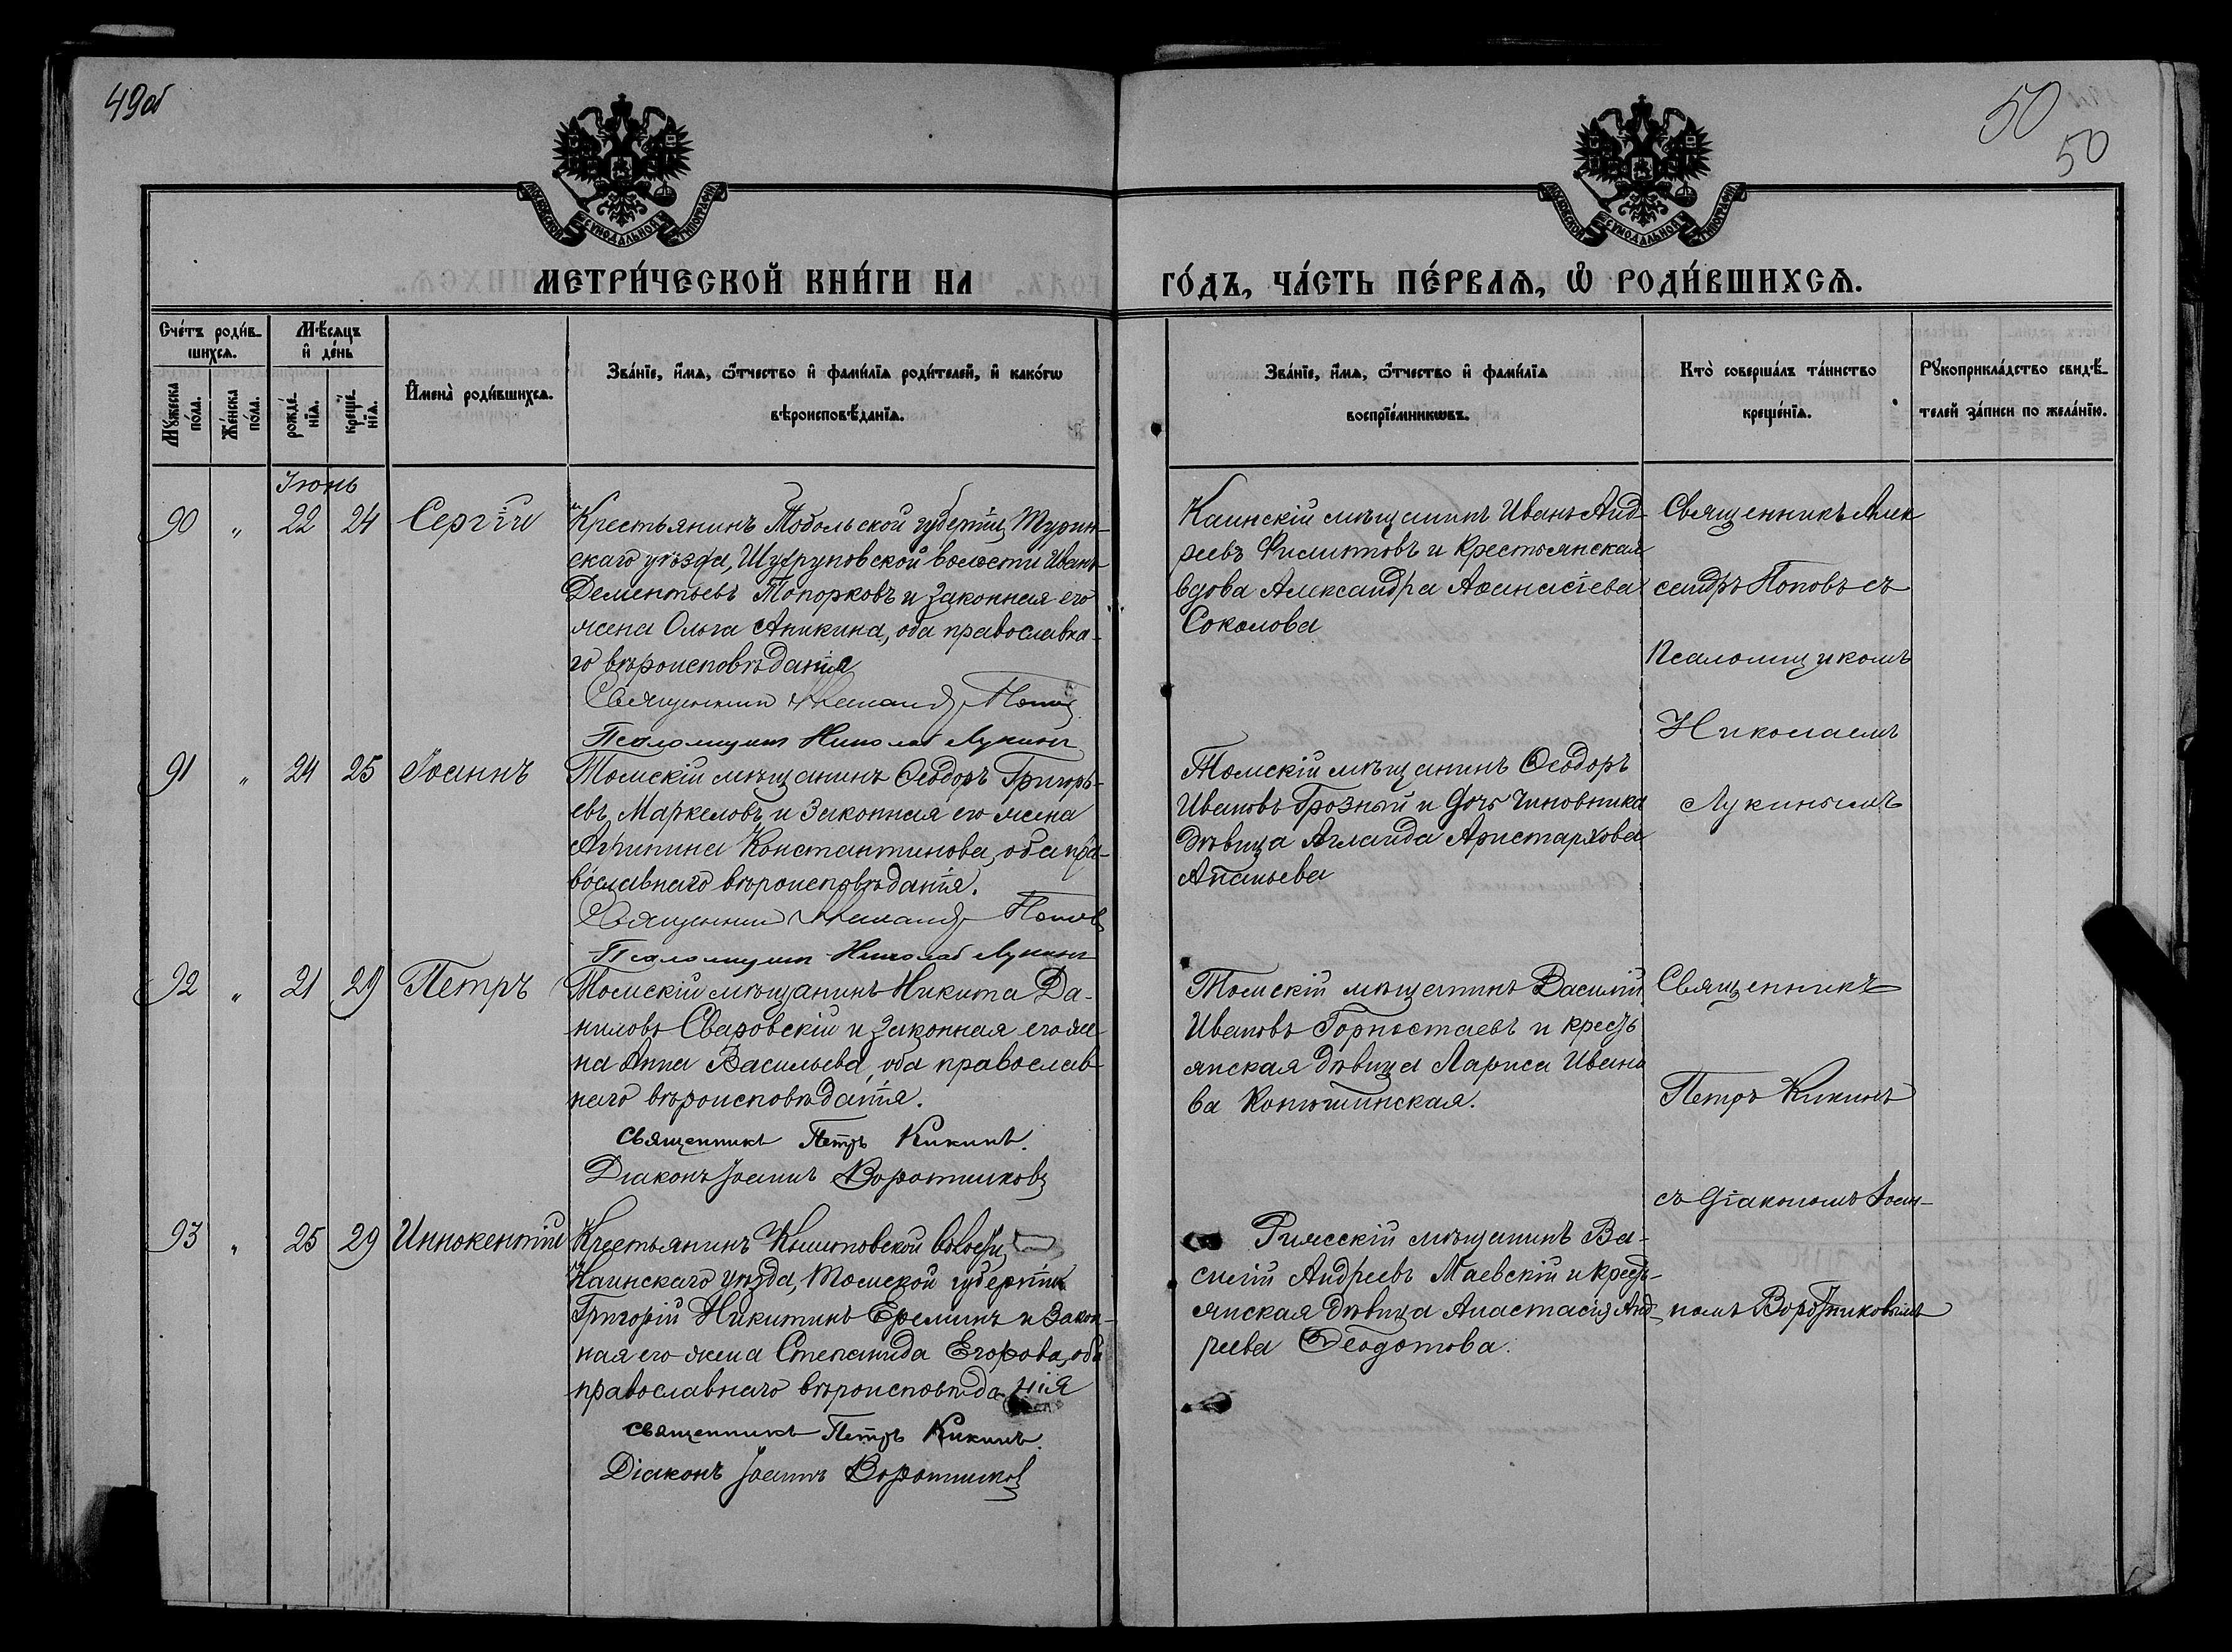 49об
50
50
МОСКОВСКОЙ СѴНОДАЛЬНОЙ ТИПОГРАФІИ
МОСКОВСКОЙ СѴНОДАЛЬНОЙ ТИПОГРАФІИ
МЕТРИ́ЧЕСКОЙ КНИ́ГИ НА
ГО́ДЪ, ЧА́СТЬ ПЕ́РВАѦ, Ѡ҆ РОДИ́ВШИХСѦ.
Сче́тъ роди́в-
шихсѧ.
Мѣ́сяцъ
и҆ де́нь
Мꙋ́жеска
по́ла.
Же́нска
по́ла.
рожде́-
нїѧ.
креще́-
нїѧ.
И҆мена̀ роди́вшихсѧ.
Зва́нїе, и҆́мѧ, ѻ҆́тчество и҆ фами́лїѧ роди́телей, и҆ како́гѡ
вѣроисповѣ́данїѧ.
Зва́нїе, и҆́мѧ, ѻ҆́тчество и҆ фами́лїѧ
воспрїе́мникѡвъ.
Кто̀ соверша́лъ та́инство
креще́нїѧ.
Рꙋкоприкла́дство свидѣ́-
телей за́писи по жела́нїю.
Іюнь
90 " 22 24 Сергій
Крестьянинъ Тобольской губерніи, Турин-
скаго уѣзда, Шухруповской волости Иванъ
Дементьевъ Топорковъ и законная его
жена Ольга Аникина, оба православна-
го вѣроисповѣданія
Священник Александр Попов
Псаломщик Николай Лукин
Каинскій мѣщанинъ Иванъ Анд-
реевъ Филиповъ и крестьянская
вдова Александра Афанасіева
Соколова
Священникъ Алек
сандръ Поповъ съ
псаломщикомъ
Николаемъ
Лукинымъ
91 " 24 25 Іоаннъ
Томскій мѣщанинъ Ѳеодоръ Григорь-
евъ Маркеловъ и законная его жена
Агрипина Константинова, оба пра-
вославнаго вѣроисповѣданія.
Священник Александр Попов
Псаломщик Николай Лукин
Томскій мѣщанинъ Ѳеодоръ
Ивановъ Грозный и дочь чиновника
дѣвица Аглаида Аристархова
Ананьева
92 " 21 29 Петръ
Томскій мѣщанинъ Никита Да-
ниловъ Сваровскій и законная его же-
на Анна Васильева, оба православ-
наго вѣроисповѣданія.
Священникъ Петръ Кикинъ.
Діаконъ Іоаннъ Воротниковъ
Томскій мѣщанинъ Василій
Ивановъ Горностаевъ и кресть
янская дѣвица Лариса Ивано
ва
Священникъ
Петръ Кикинъ
съ діакономъ Іоан-
номъ Воротниковымъ
93 " 25 29 Иннокентій
Крестьянинъ Кыштовской волости,
Каинскаго уѣзда, Томской губерніи
Григорій Никитинъ Ереминъ и закон-
ная его жена Степанида Егорова, оба
православнаго вѣроисповѣданія
Священникъ Петръ Кикинъ.
Діаконъ Іоаннъ Воротников
Ряжскій мѣщанинъ Ва-
силій Андреевъ Маевскій и кресть-
янская дѣвица Анастасія Анд-
реева Ѳеодотова.